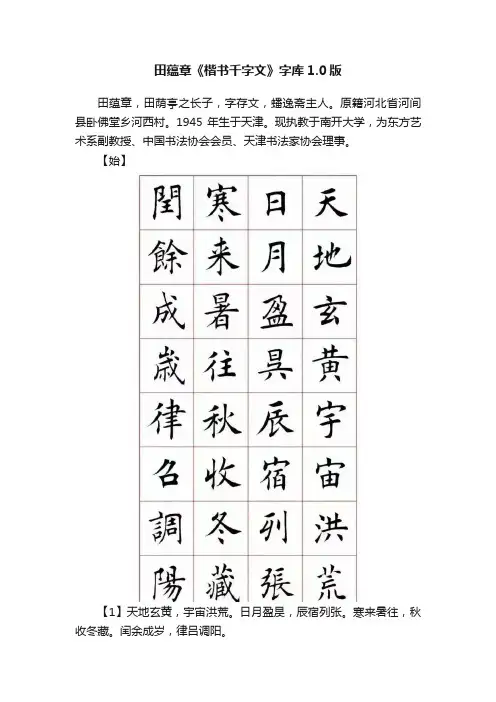 田蕴章《楷书千字文》字库1.0版
田蕴章，田荫亭之长子，字存文，蟫逸斋主人。原籍河北省河间
县卧佛堂乡河西村。1945 年生于天津。现执教于南开大学，为东方艺
术系副教授、中国书法协会会员、天津书法家协会理事。
【始】
天地玄黄宇宙洪荒
日月盈昃辰宿列張
寒来暑往秋收冬藏
閏餘成嵗律召調陽
【1】天地玄黄，宇宙洪荒。日月盈昃，辰宿列张。寒来暑往，秋
收冬藏。闰余成岁，律吕调阳。